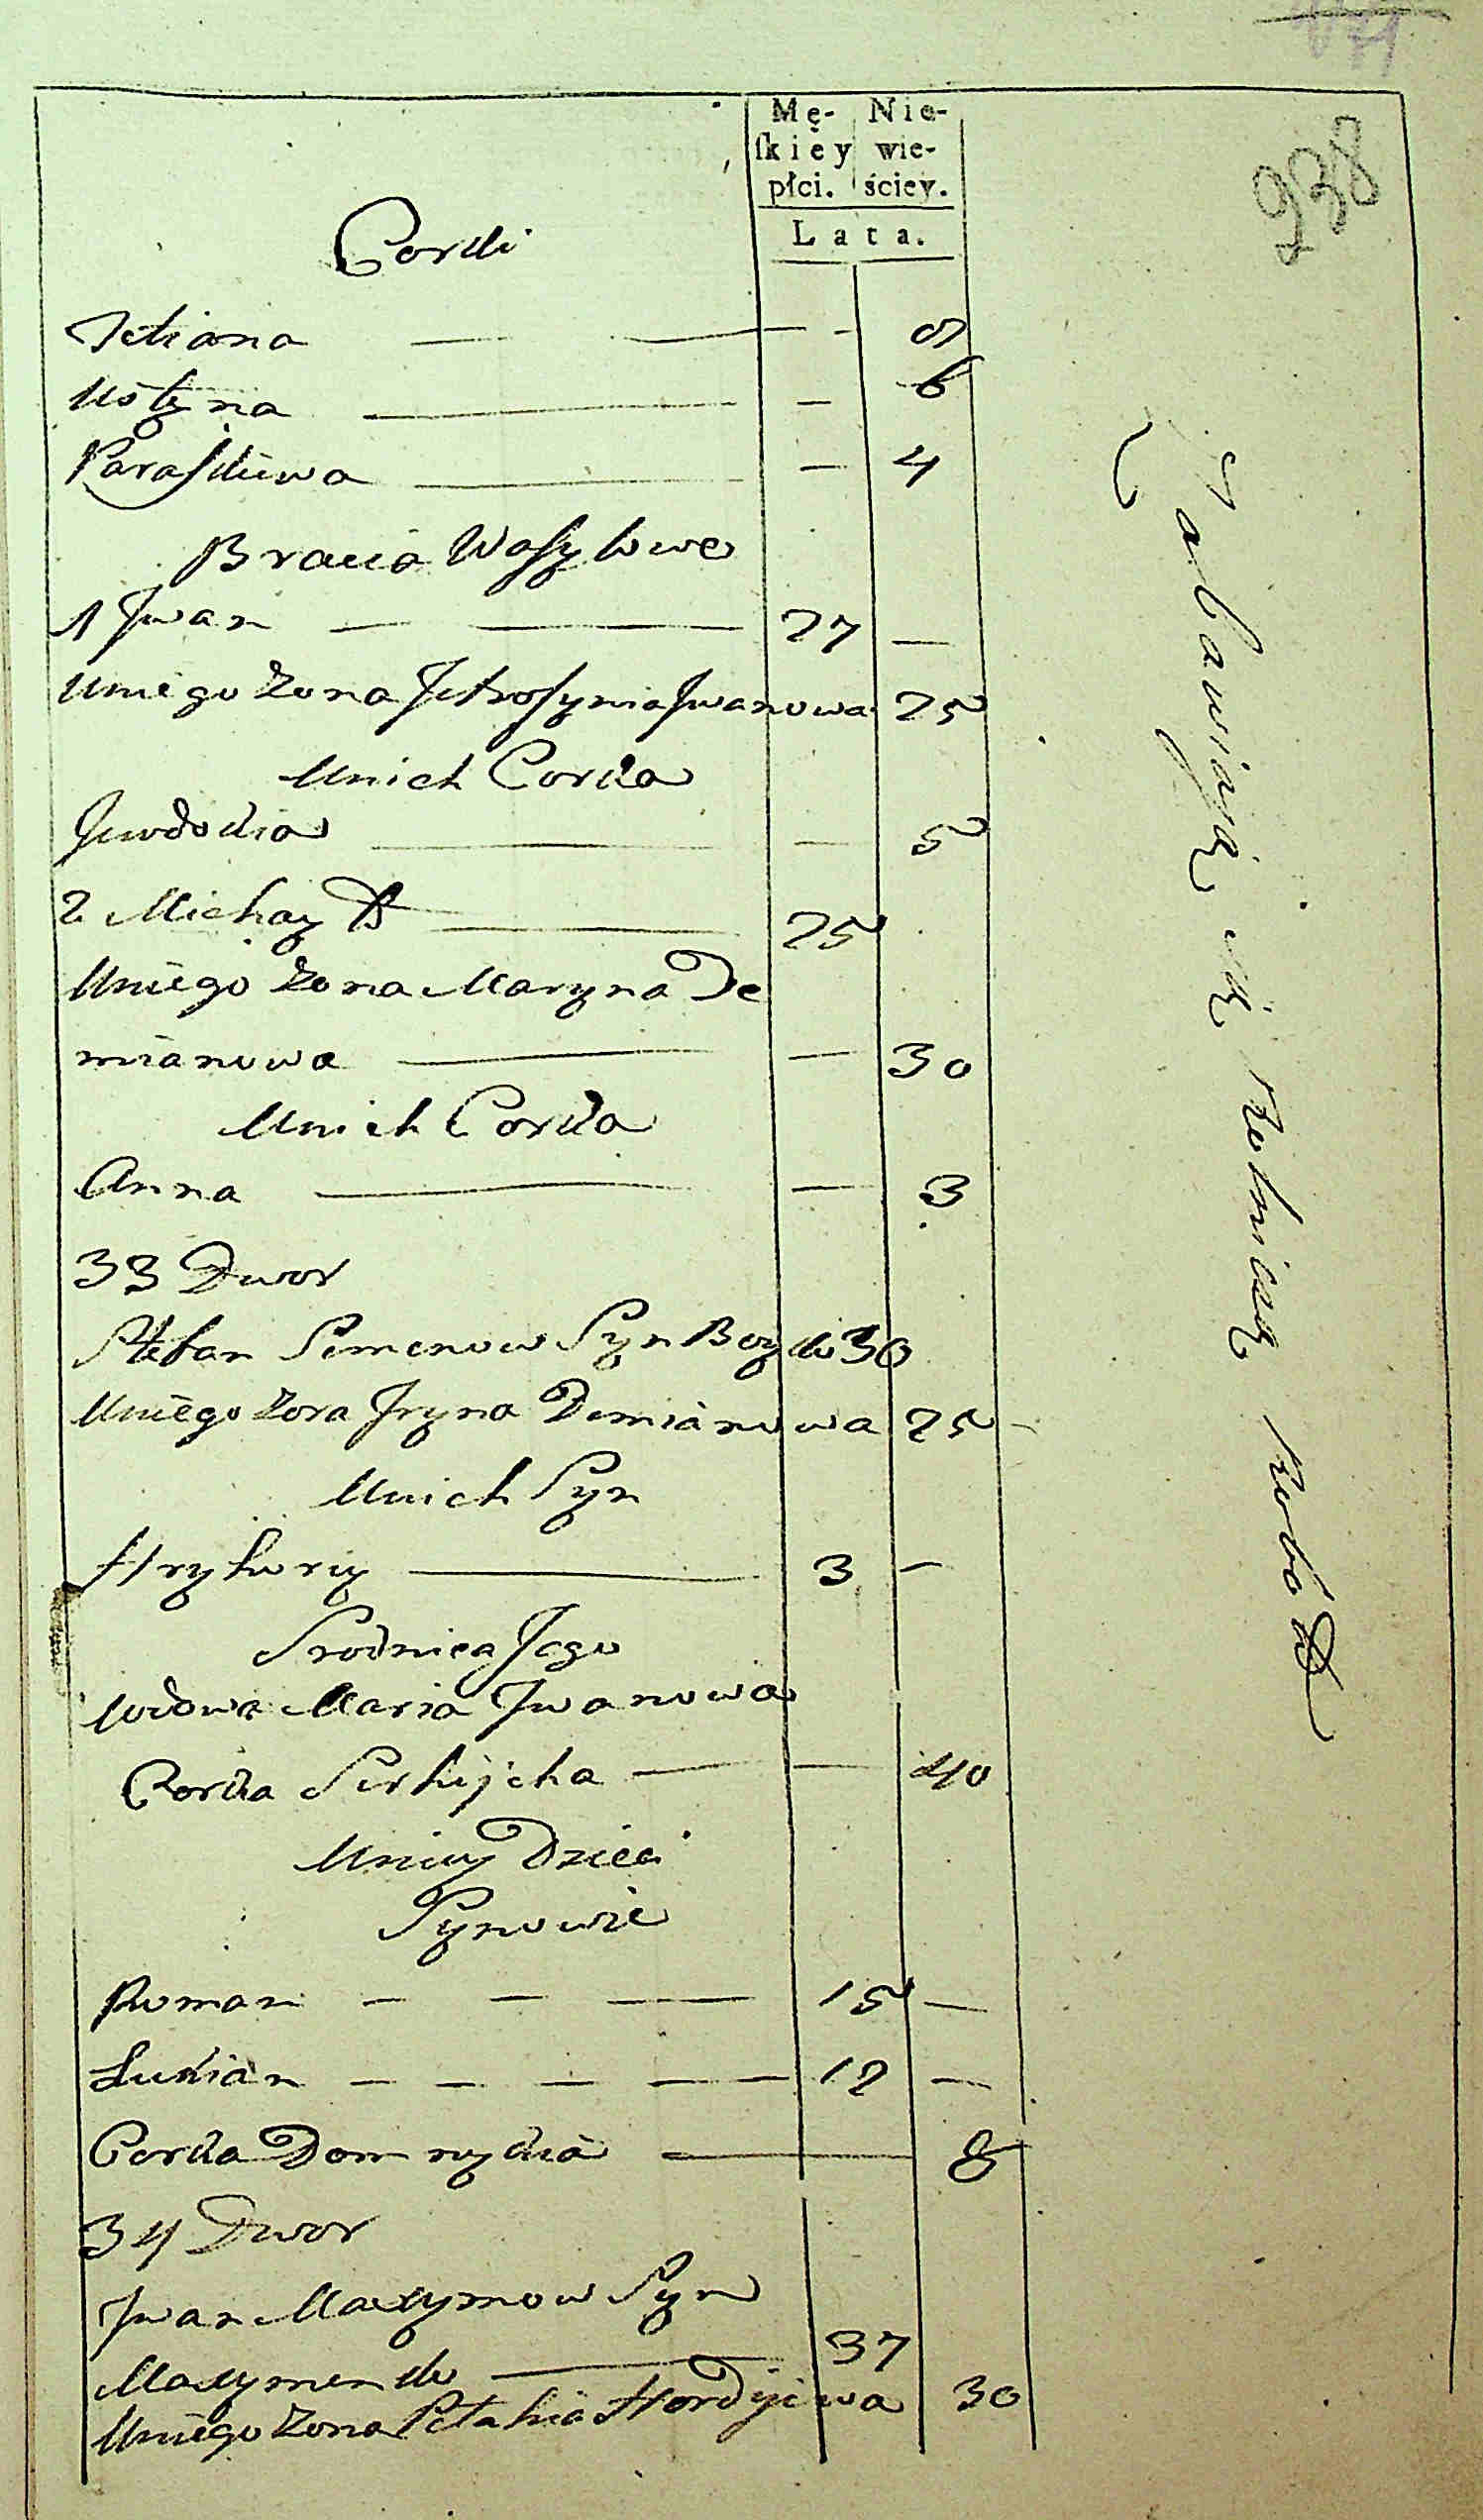 938
Mę- Nie-
skiey wie-
płci. ściey.
Lata.
Corki
Tetiana — — 9
Ustyna — — 6
Paraskiewa — — 4
Bracia Wasylowe
1 Jwan — — 27 —
Uniego Zona Jefrosynia Jwanowa 25
Unich Corka
Jewdokia — — 5
2 Michayło — 25
Uniego Zona Maryna De
mianowa — — 30
Unich Corka
Anna — — 3
33 Dwor
Stefan Semenow Syn 30
Uniego Zona Jryna Demianowa 25 —
Unich Syn
Hryhory — 3 —
Srodnica Jego
Wdowa Maria Jwanowa
Corka — — 40
Uniey Dzieci
Synowie
Roman — — — 15 —
Łukian — — — — — 12 —
Corka Domnykia — 8
34 Dwor
Jwan Maxymow Syn
Maxymenko — 37
Uniego Zona Petahia Hordyiewa 30
Zabawiaią się Rolniczą Robotą